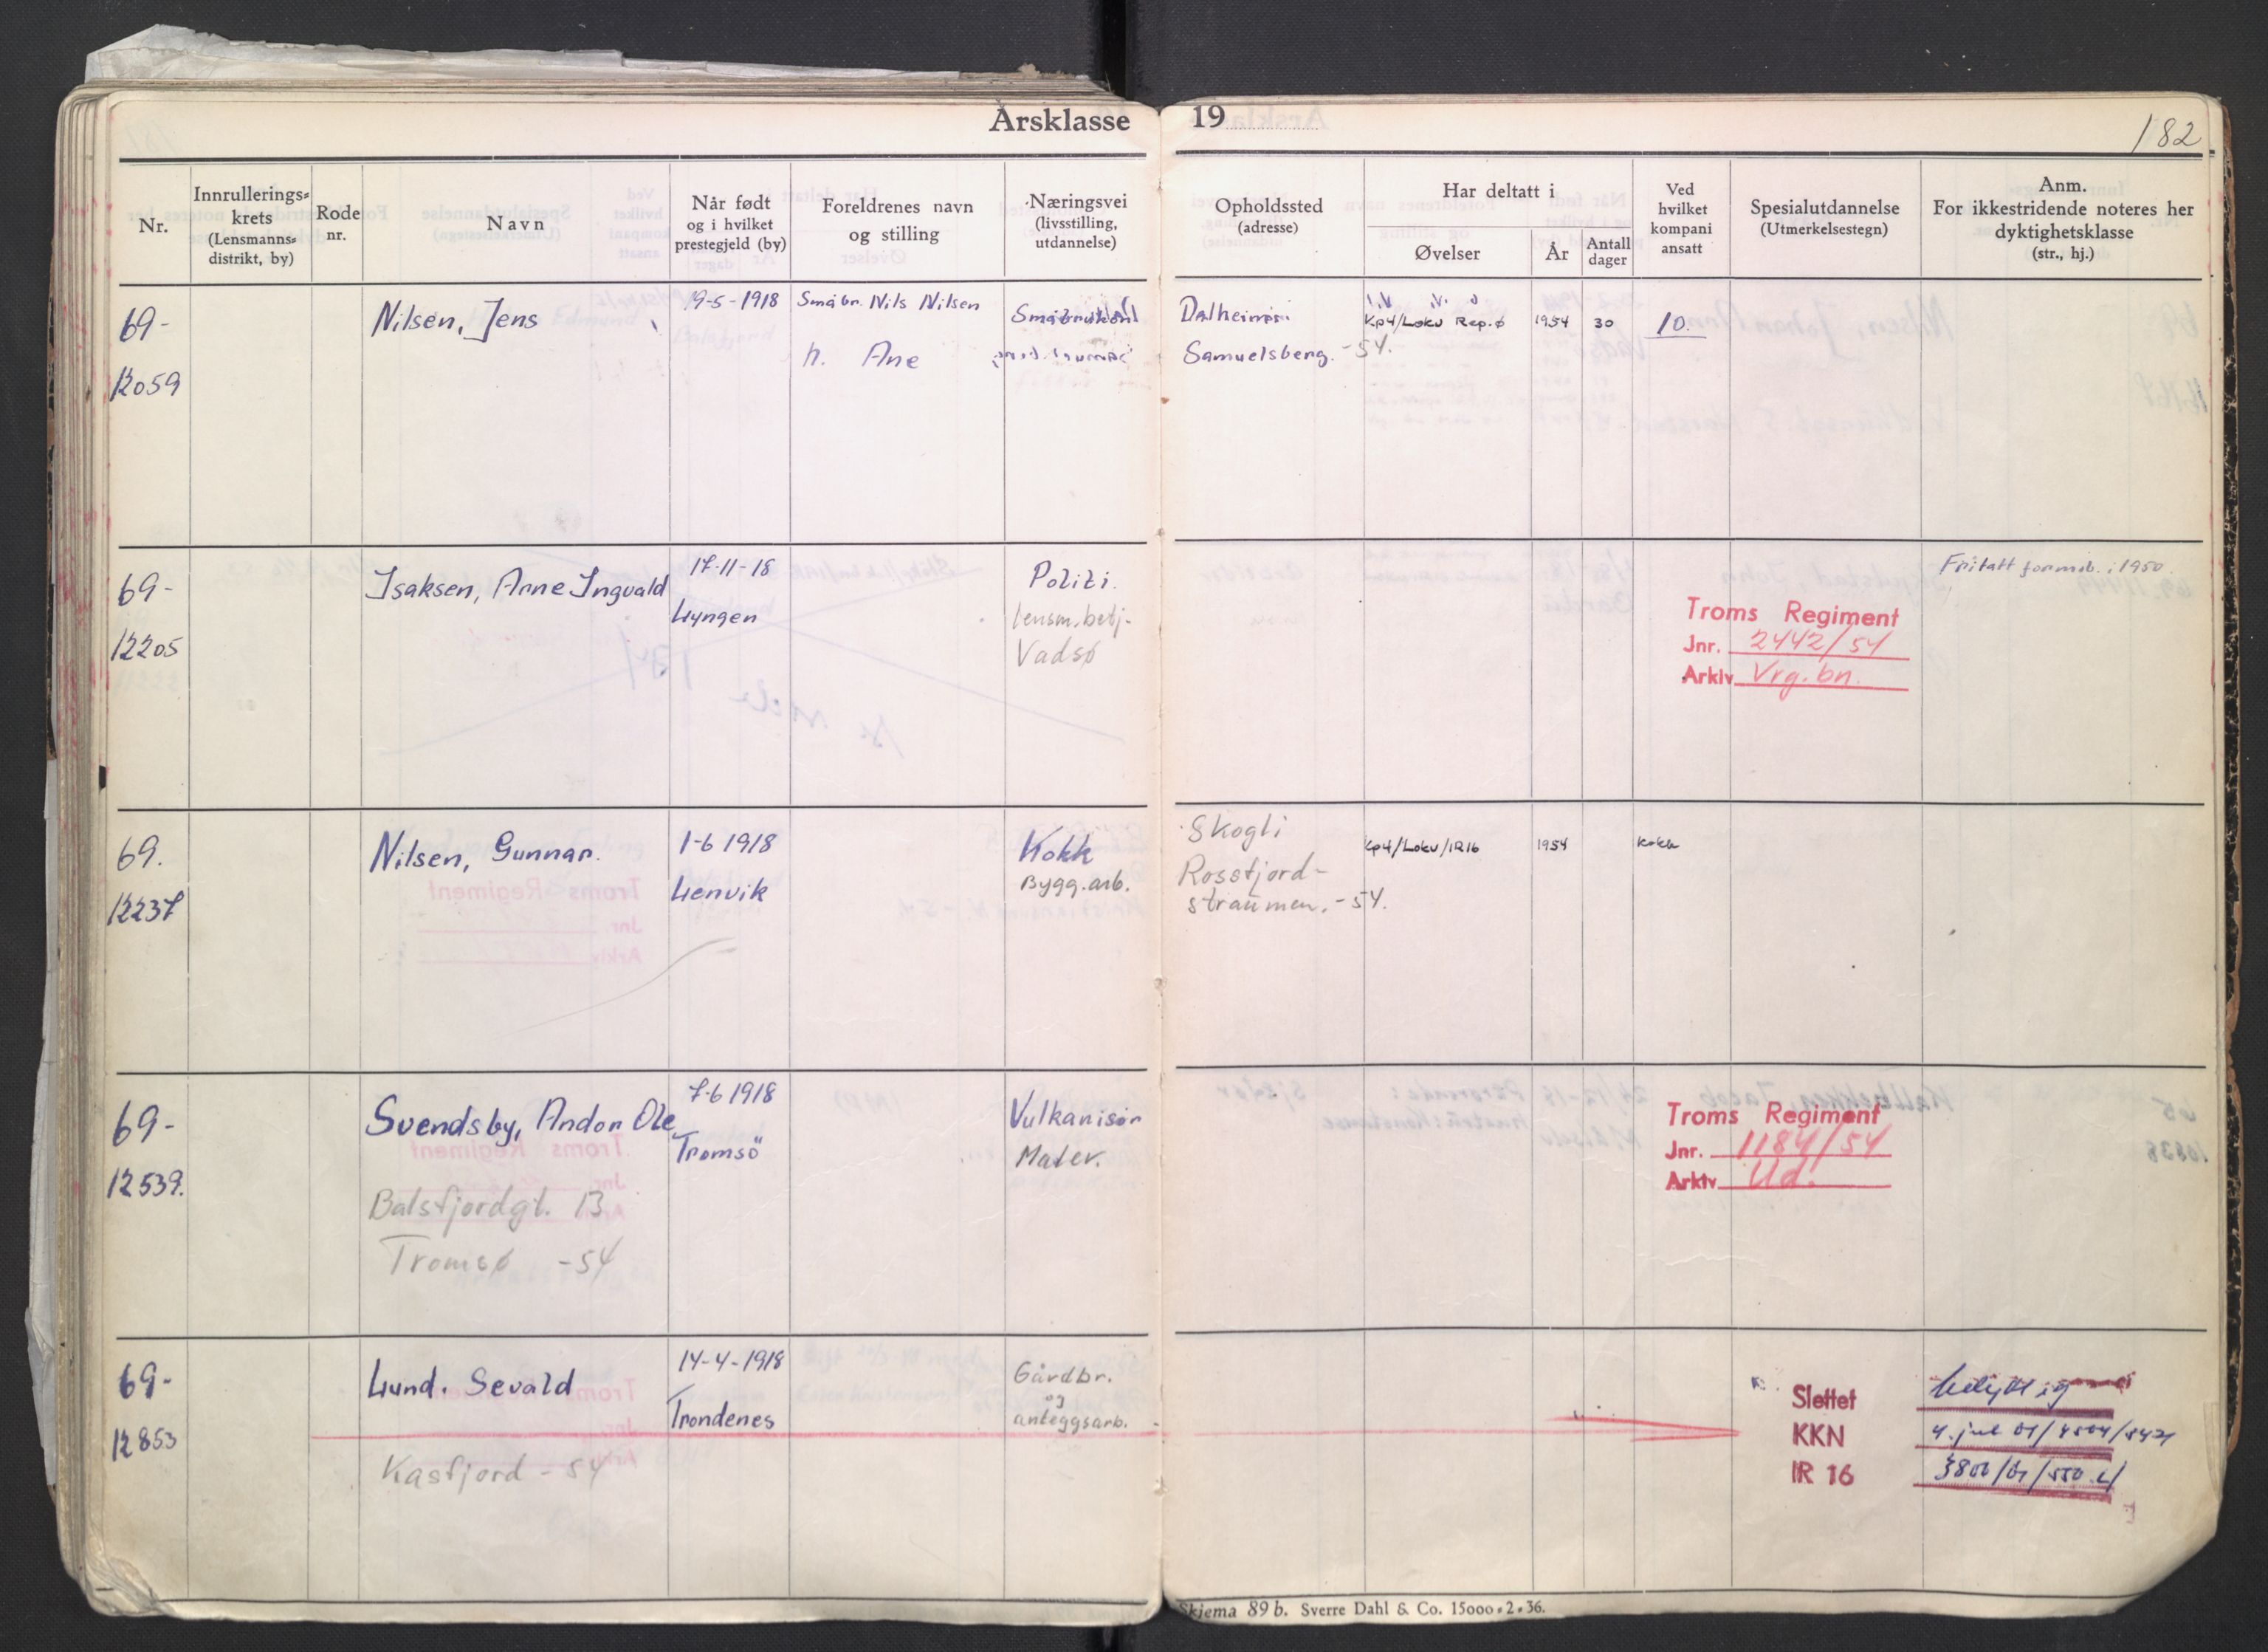 Årsklasse 19
182
Nr.
Innrullerings-
krets
(Lensmanns-
distrikt, by)
Rode
nr.
Navn
Når født
og i hvilket
prestegjeld (by)
Foreldrenes navn
og stilling
Næringsvei
(livsstilling,
utdannelse)
Opholdssted
(adresse)
Har deltatt i
Øvelser
År
Antall
dager
Ved
hvilket
kompani
ansatt
Spesialutdannelse
(Utmerkelsestegn)
Anm.
For ikkestridende noteres her
dyktighetsklasse
(str., hj.)
69-
12059
Nilsen, Jens
9-5-1918
Småbr. Nils Nilsen
h. Ane
Dalheim
Samuelsberg. -54.
Kp4/Lokv Rep.ø
1954
30
10.
69-
12205
Isaksen, Arne Ingvald
17-11-18
Lyngen
Politi.
lensm.betj.
Vadsø
Troms Regiment
Jnr. 2442/54
Arkiv Vrg. bn.
Fritatt for mob. i 1950.
69.
12237
Nilsen, Gunnar.
1-6 1918
Lenvik
Kokk
Bygg.arb.
Skogli
Rossfjord-
straumen. -54.
Kp4/Lokv/IR16
1954
Kokk
69-
12539.
Svendsby, Andor Ole
7-6 1918
Tromsö
Balsfjordgt. 13
Tromsø -54
Vulkanisör
Maler.
Troms Regiment
Jnr. 1184/54
Arkiv Ud.
69-
12853
Lund. Sevald
14-4-1918
Trondenes
Kasfjord - 54
Gårdbr.
og
anleggsarb.
Slettet
KKN
IR 16
Skjema 89 b. Sverre Dahl & Co. 15000-2-36.